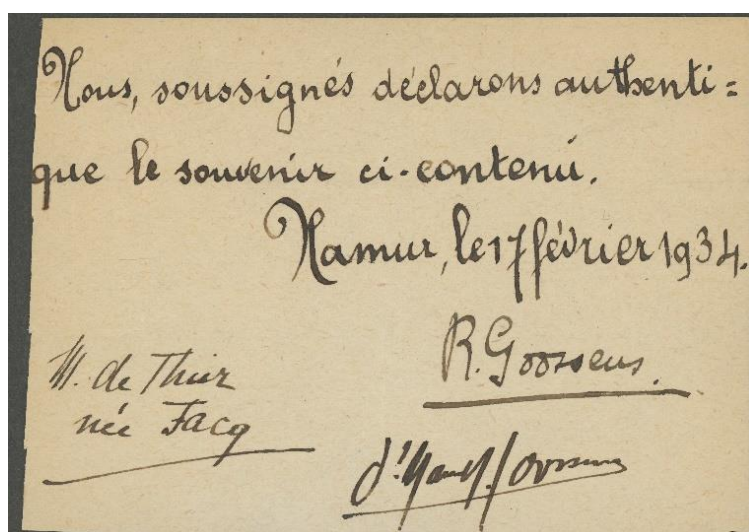 Nous, soussignés déclarons authenti=
que le souvenir ci-contenu.
Namur, le 17 février 1934.
R. Goossens.
M. de Thier
née Jacq